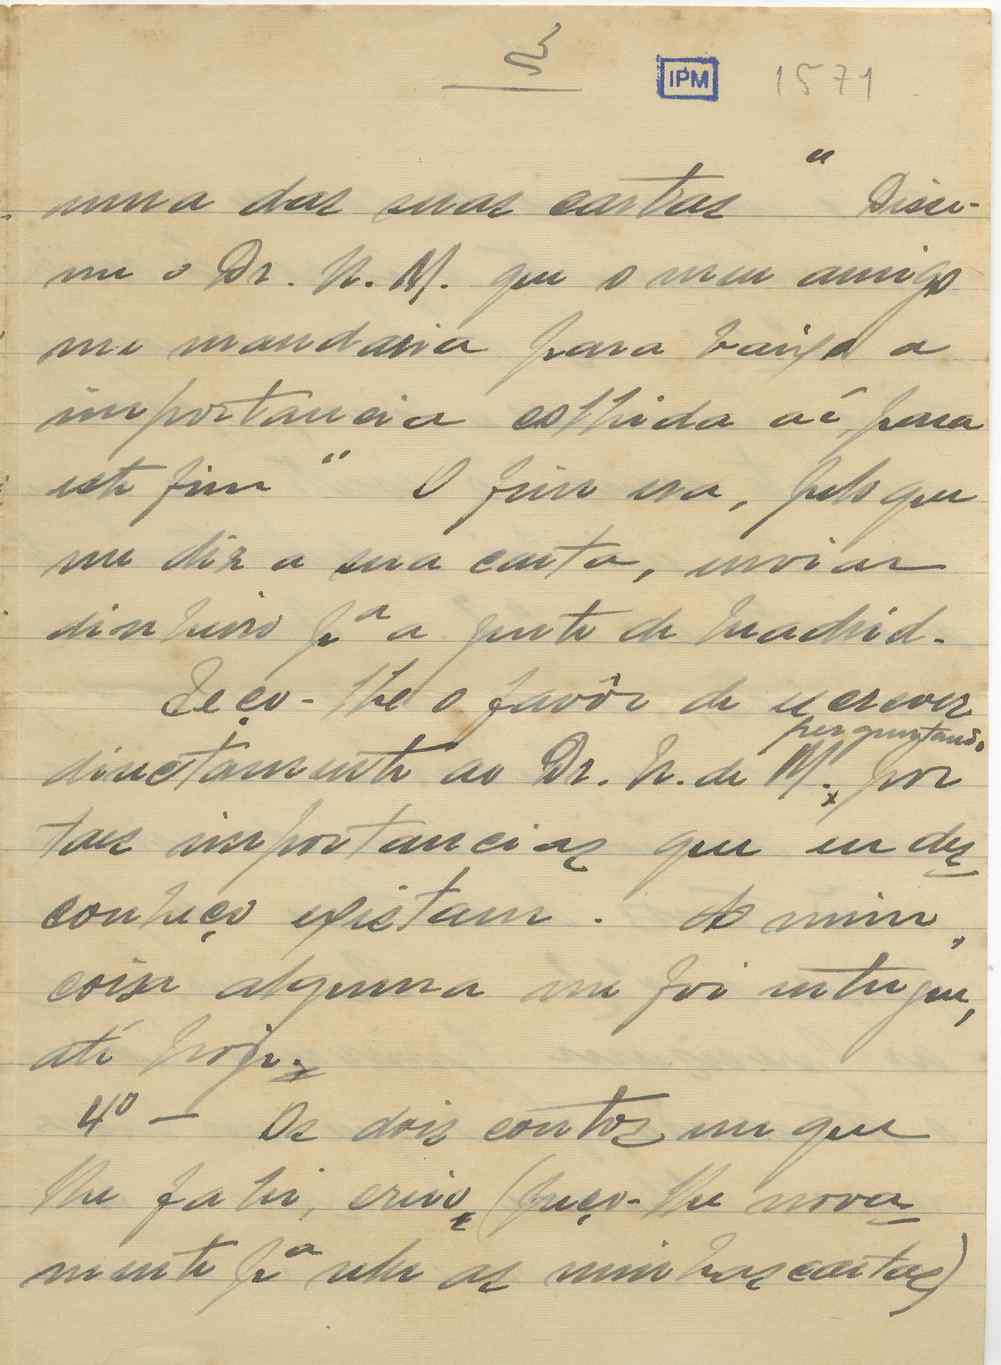 IPM 1571
numa das suas cartas " Disse-
me o Dr. N. M. que o meu amigo
me mandaria para baixo a
importancia colhida aí, para
este fim " O fim era, pelo que
me diz a sua carta, enviar
dinheiro pª a gente de Madrid.
Peço-lhe o favôr de escrever
perguntando
directamente ao Dr. N. de M. por
taes importancias que eu des
conheço existam. A mim,
coisa alguma me foi entregue,
até hoje.
4º — Os dois contos em que
lhe falei, creio (peço-lhe nova
mente pª reler as minhas cartas)